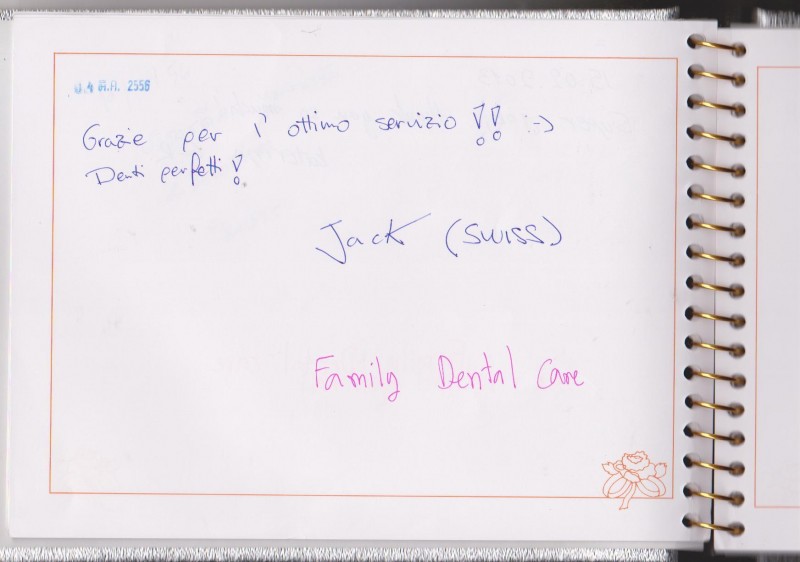 04 มี.ค. 2556
Grazie per l'ottimo servizio !! :->
Denti perfetti!
Jack (SWISS)
Family Dental Care